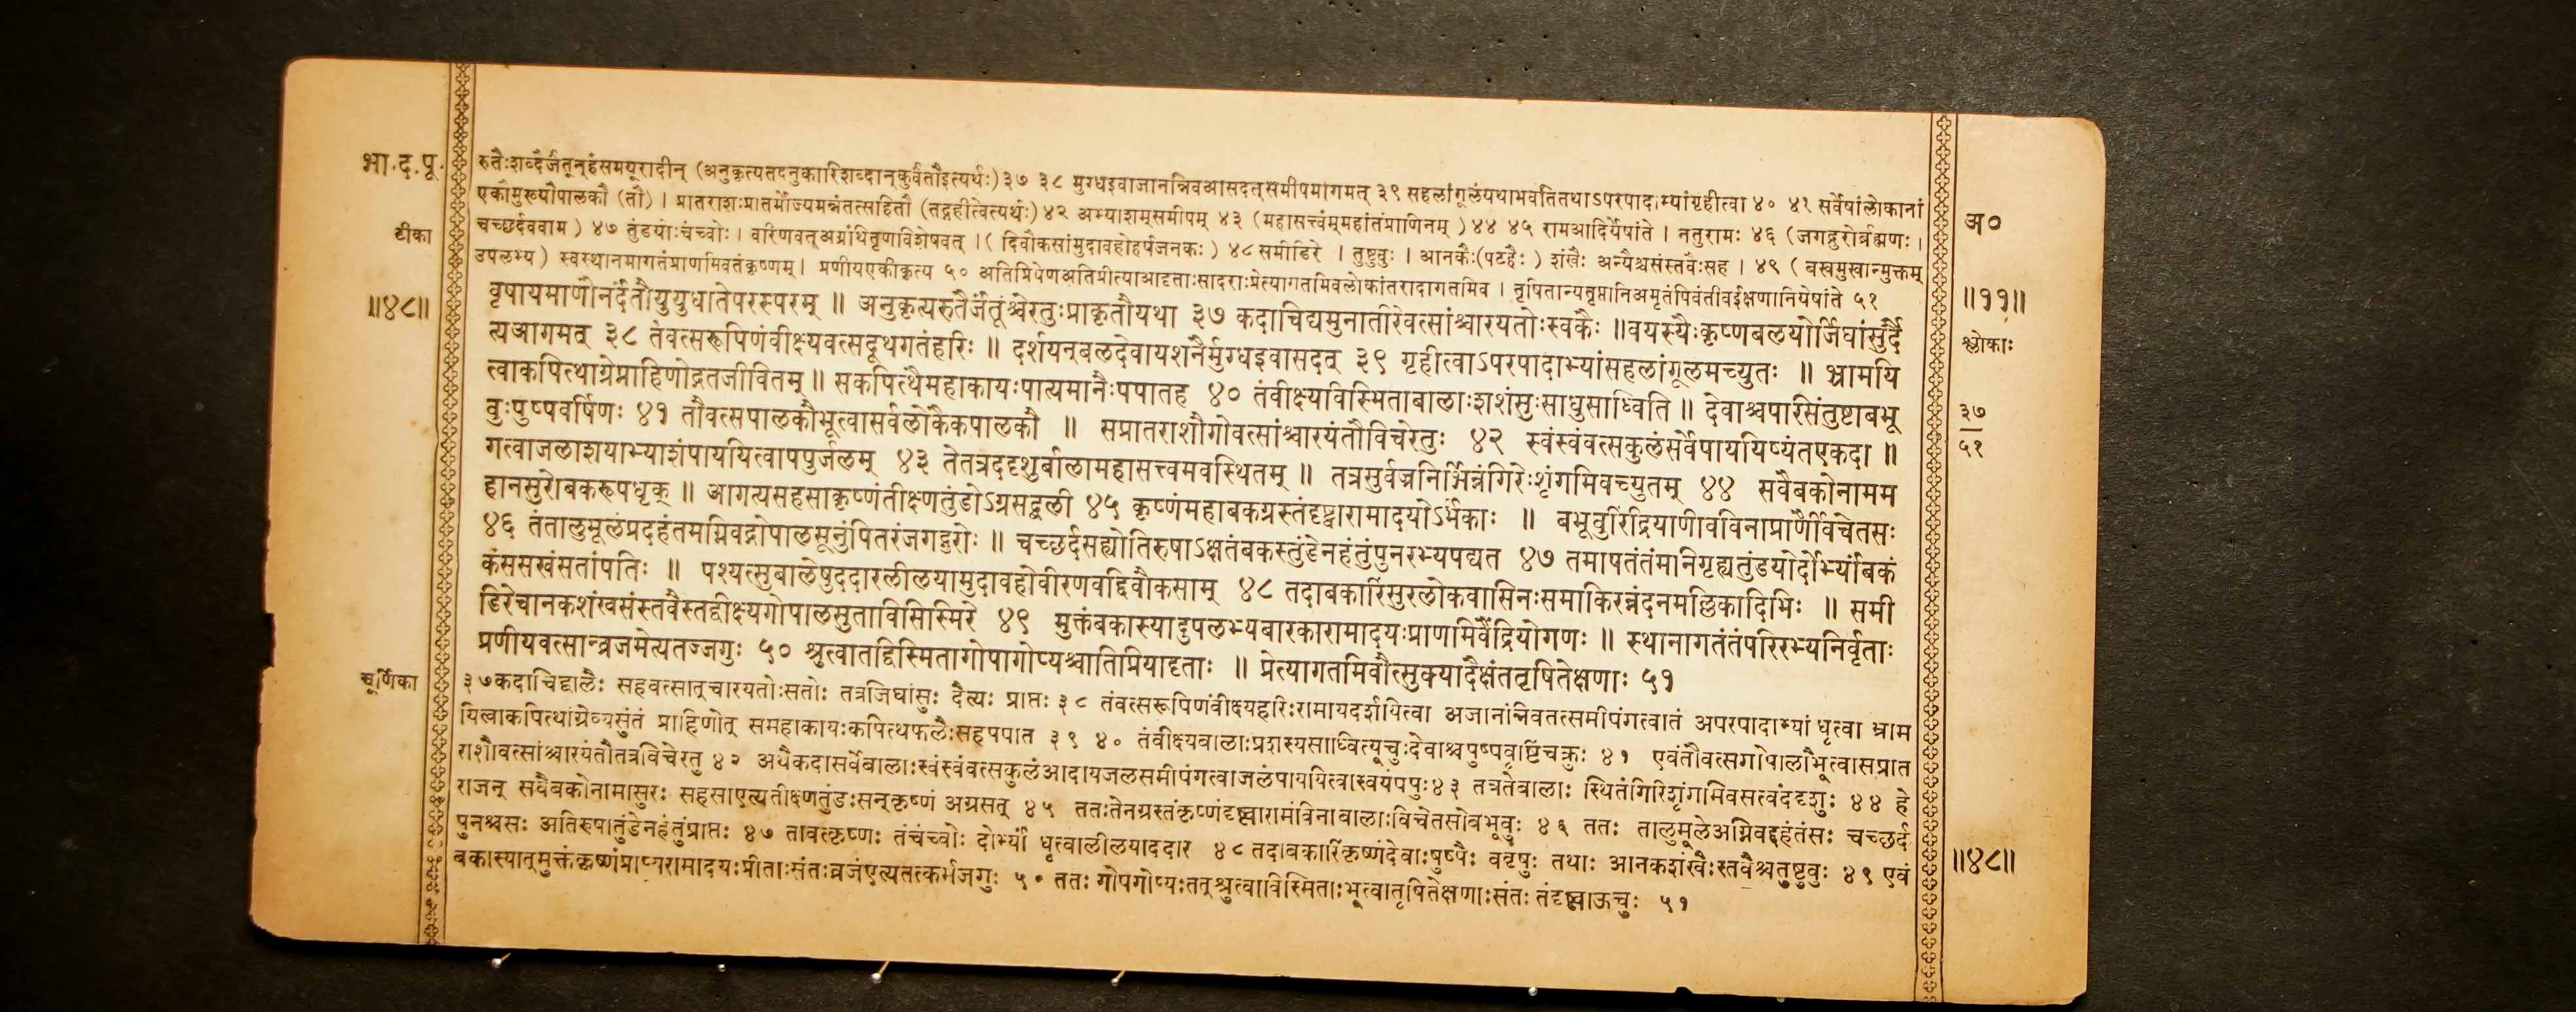 भा.द.पू.
टीका
॥४८॥
रुतैःशब्दैर्जंतून्हंसमयूरादीन् (अनुकृत्यतदनुकारिशब्दान्कुर्वंतौइत्यर्थः) ३७ ३८ मुग्धइवाजानन्निवआसदत्समीपमागमत् ३९ सहलांगूलंयथाभवतितथाऽपरपादाभ्यांगृहीत्वा ४० ४१ सर्वेषांलोकानां
एकौमुख्यौपालकौ (तौ) । प्रातराशःप्रातर्भोज्यमन्नंतत्सहितौ (तद्गृहीत्वेत्यर्थः) ४२ अभ्याशम्समीपम् ४३ (महासत्त्वंम्महांतंप्राणिनम् ) ४४ ४५ रामआदिर्येषांते । नतुरामः ४६ (जगद्गुरोर्ब्रह्मणः ।
चच्छर्दववाम ) ४७ तुंडयोःचंच्वोः । वीरणवत्अग्रंथितृणविशेषवत् । ( दिवौकसांमुदावहोहर्षजनकः ) ४८ समीडिरे । तुष्टुवुः । आनकैः(पटहैः ) शंखैः अन्यैश्चसंस्तवैःसह । ४९ ( बकमुखान्मुक्तम्
उपलभ्य ) स्वस्थानमागतंप्राणमिवतंकृष्णम्। प्रणीयएकीकृत्य ५० अतिप्रियेणअतिप्रीत्याआदृताःसादराःप्रेत्यागतमिवलोकांतरादागतमिव । तृषितान्यतृप्तानिअमृतंपिबंतीवईक्षणानियेषांते ५१
वृषायमाणौनर्दंतौयुयुधातेपरस्परम् ॥ अनुकृत्यरुतैर्जंतूंश्चेरतुःप्राकृतौयथा ३७ कदाचिद्यमुनातीरेवत्सांश्चारयतोःस्वकैः ॥वयस्यैःकृष्णबलयोर्जिघांसुर्दै
त्यआगमत् ३८ तंवत्सरूपिणंवीक्ष्यवत्सयूथगतंहरिः ॥ दर्शयन्बलदेवायशनैर्मुग्धइवासदत् ३९ गृहीत्वाऽपरपादाभ्यांसहलांगूलमच्युतः ॥ भ्रामयि
त्वाकपित्थाग्रेप्राहिणोद्गतजीवितम् ॥ सकपित्थैर्महाकायःपात्यमानैःपपातह ४० तंवीक्ष्यविस्मिताबालाःशशंसुःसाधुसाध्विति ॥ देवाश्चपरिसंतुष्टाबभू
वुःपुष्पवर्षिणः ४१ तौवत्सपालकौभूत्वासर्वलोकैकपालकौ ॥ सप्रातराशौगोवत्सांश्चारयंतौविचेरतुः ४२ स्वंस्वंवत्सकुलंसर्वेपाययिष्यंतएकदा ॥
गत्वाजलाशयाभ्याशंपाययित्वापपुर्जलम् ४३ तेतत्रददृशुर्बालामहासत्त्वमवस्थितम् ॥ तत्रसुर्वज्रनिर्भिन्नंगिरेःशृंगमिवच्युतम् ४४ सवैबकोनामम
हानसुरोबकरूपधृक् ॥ आगत्यसहसाकृष्णंतीक्ष्णतुंडोऽग्रसद्बली ४५ कृष्णंमहाबकग्रस्तंदृष्ट्वारामादयोऽर्भकाः ॥ बभूवुरिंद्रियाणीवविनाप्राणैर्विचेतसः
४६ तंतालुमूलंप्रदहंतमग्निवद्गोपालसूनुंपितरंजगद्गुरोः ॥ चच्छर्दसद्योतिरुषाऽक्षतंबकस्तुंडेनहंतुंपुनरभ्यपद्यत ४७ तमापतंतंमानिगृह्यतुंडयोर्दोर्भ्यांबकं
कंससखंसतांपतिः ॥ पश्यत्सुबालेषुददारलीलयामुदावहोवीरणवद्दिवौकसाम् ४८ तदाबकारिंसुरलोकवासिनःसमाकिरन्नंदनमल्लिकादिभिः ॥ समी
डिरेचानकशंखसंस्तवैस्तद्वीक्ष्यगोपालसुताविसिस्मिरे ४९ मुक्तंबकास्यादुपलभ्यबारकारामादयःप्राणमिवेंद्रियोगणः ॥ स्थानागतंतंपरिरभ्यनिर्वृताः
प्रणीयवत्सान्व्रजमेत्यतज्जगुः ५० श्रुत्वातद्विस्मितागोपागोप्यश्चातिप्रियादृताः ॥ प्रेत्यागतमिवौत्सुक्यादैक्षंततृषितेक्षणाः ५१
चूर्णिका
३७कदाचिद्बालैः सहवत्सान्चारयतोःसतोः तत्रजिघांसुः दैत्यः प्राप्तः ३८ तंवत्सरूपिणंवीक्ष्यहरिःरामायदर्शयित्वा अजानंन्निवतत्समीपंगत्वातं अपरपादाभ्यां धृत्वा भ्राम
यित्वाकपित्थाग्रेव्यसुंतं प्राहिणोत् समहाकायःकपित्थफलैःसहपपात ३९ ४० तंवीक्ष्यबालाःप्रशस्यसाध्वित्यूचुःदेवाश्चपुष्पवृष्टिंचक्रुः ४१ एवंतौवत्सगोपालौभूत्वासप्रात
राशौवत्सांश्चारयंतौतत्रविचेरतु ४२ अथैकदासर्वेबालाःस्वंस्वंवत्सकुलंआदायजलसमीपंगत्वाजलंपाययित्वास्वयंपपुः४३ तत्रतेबालाः स्थितंगिरिशृंगमिवसत्वंददृशुः ४४ हे
राजन् सवैबकोनामासुरः सहसाएत्यतीक्ष्णतुंडःसन्कृष्णं अग्रसत् ४५ ततःतेनग्रस्तंकृष्णंदृष्ट्वारामंविनाबालाःविचेतसोबभूवुः ४६ ततः तालुमूलेअग्निवद्दहंतंसः चच्छर्द
पुनश्चसः अतिरुषातुंडेनहंतुंप्राप्तः ४७ तावत्कृष्णः तंचंच्वोः दोर्भ्यां धृत्वालीलयाददार ४८ तदाबकारिंकृष्णंदेवाःपुष्पैः ववृषुः तथाः आनकशंखैःस्तवैश्चतुष्टुवुः ४९ एवं
बकास्यात्मुक्तंकृष्णंप्राप्यरामादयःप्रीताःसंतःव्रजंएत्यतत्कर्मजगुः ५० ततः गोपगोप्यःतत्श्रुत्वाविस्मिताःभूत्वातृषितेक्षणाःसंतः तंदृष्ट्वाऊचुः ५१
अ०
॥११॥
श्लोकाः
३७
५१
॥४८॥